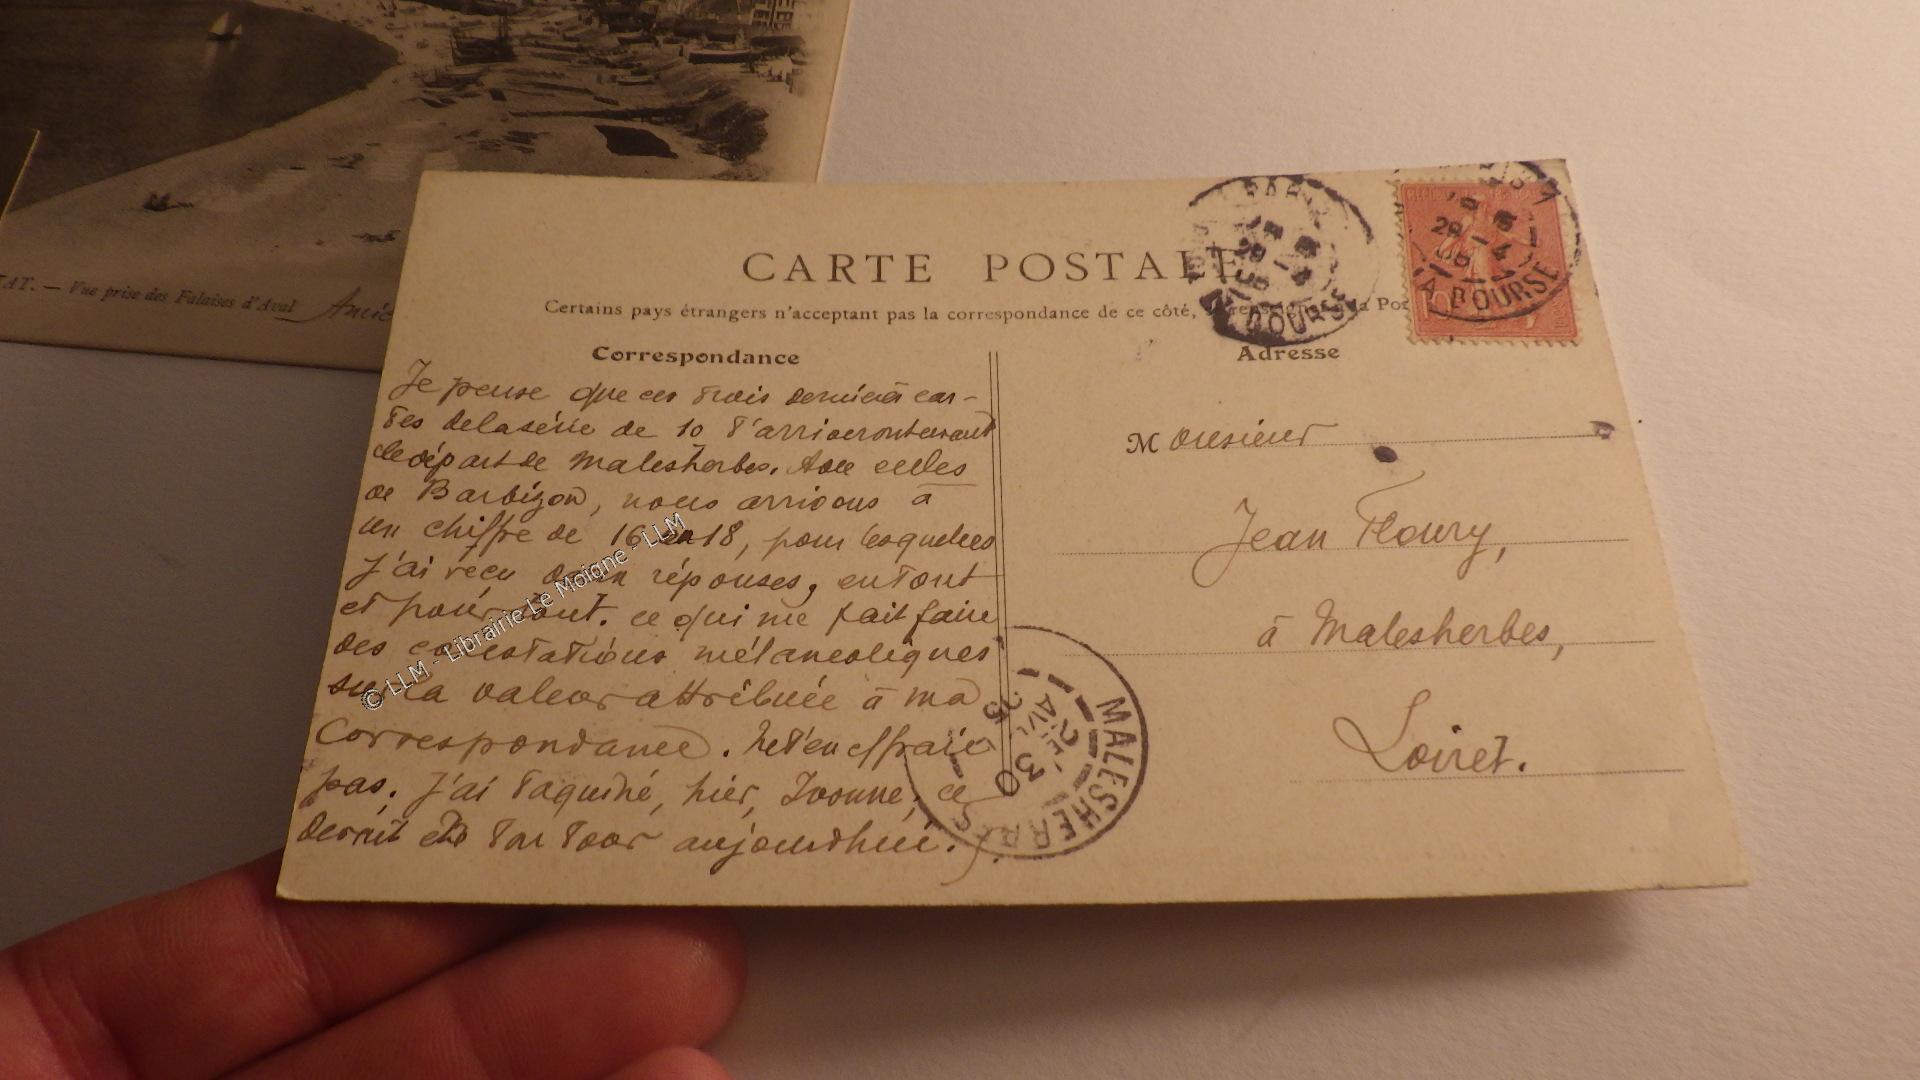 TAT. — Vue prise des Falaises d'Aval
CARTE POSTALE
Certains pays étrangers n'acceptant pas la correspondance de ce côté,
Correspondance
Adresse
Je pense que ces trois dernières car-
tes de la série de 10 t'arriveront avant
le départ de Malesherbes. Avec celles
de Barbizon, nous arrivons à
un chiffre de 16 18, pour lesquelles
J'ai reçu réponses, en tout
et pour tout. ce qui me fait faire
des constatations mélancoliques
sur la valeur attribuée à ma
Correspondance. Ne t'en effraie
pas. J'ai taquiné, hier, Ivonne, ce
devait ton tour aujourd'hui.
Monsieur
Jean Floury,
à Malesherbes,
Loiret.
LA BOURSE
29 - 4
BOURSE
MALESHERBES
30
AVRIL
© LLM - Librairie Le Moigne - LLM